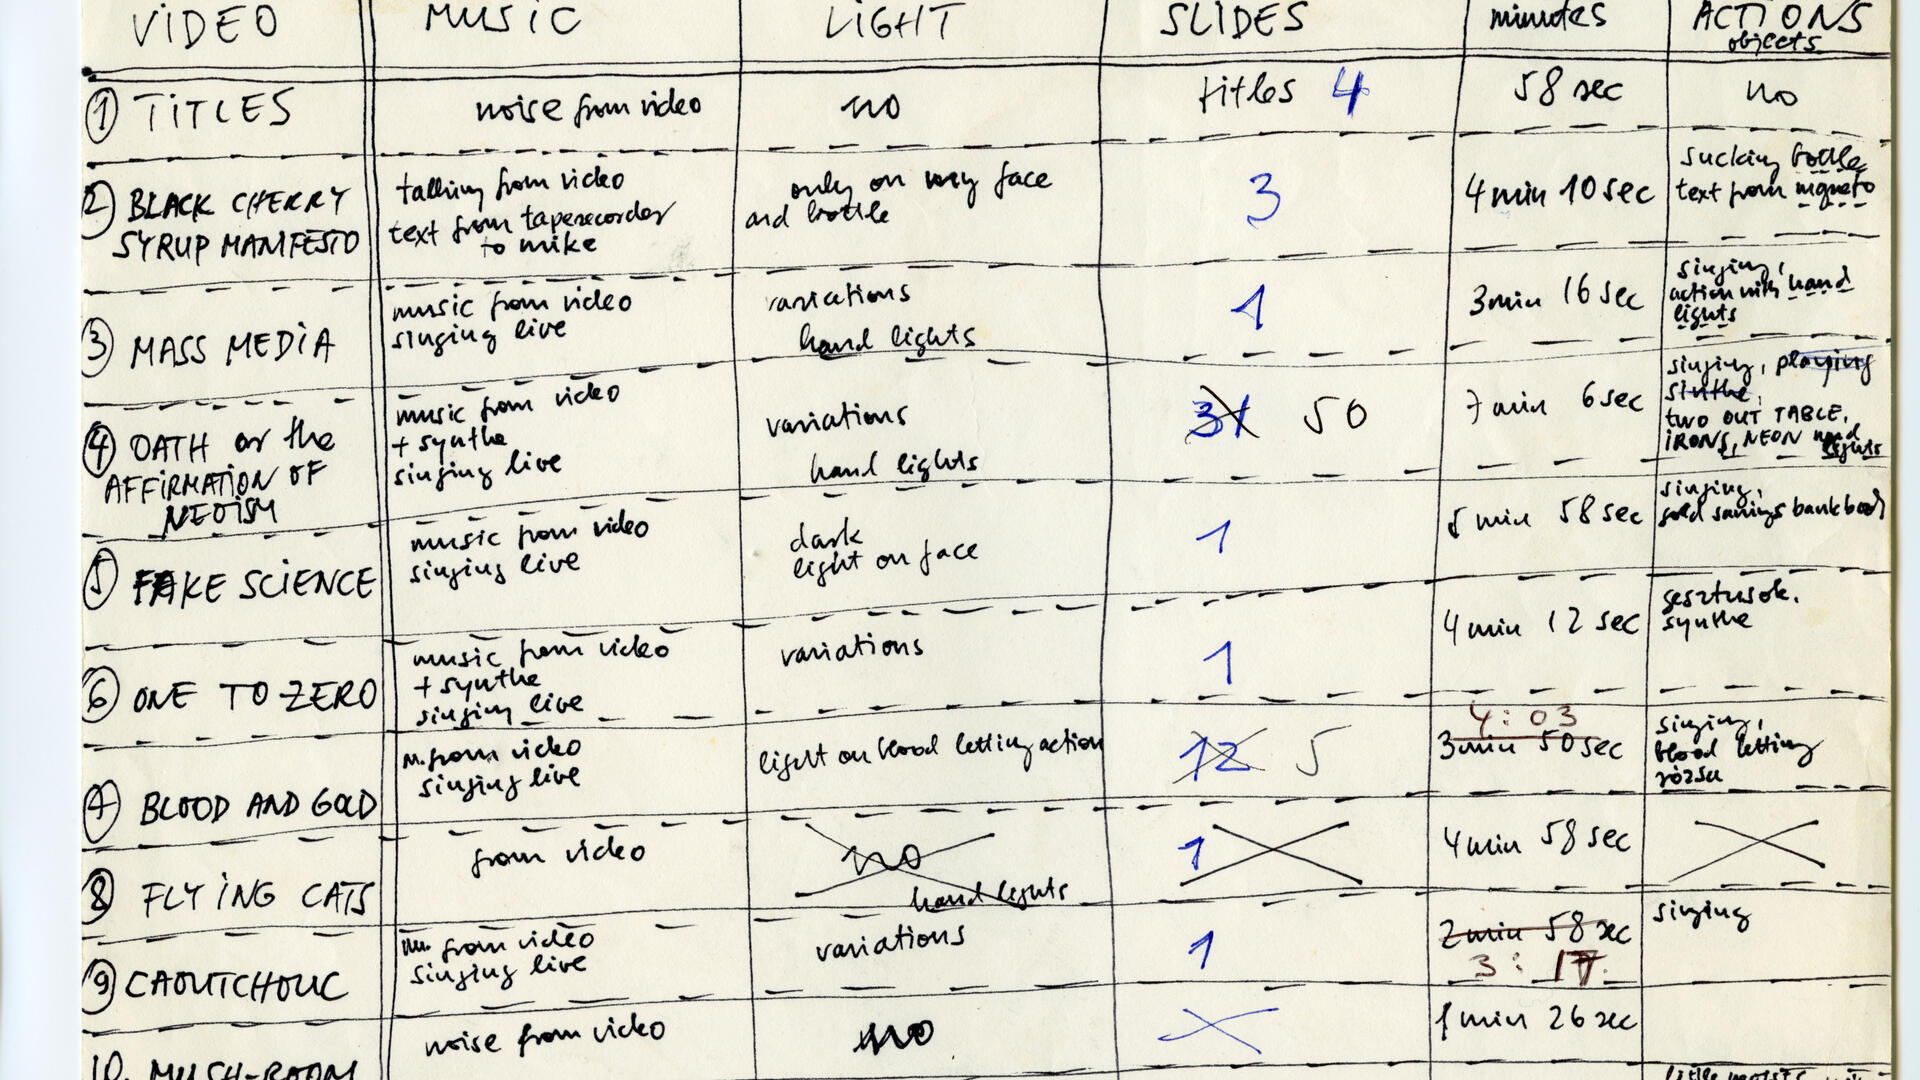 VIDEO MUSIC LIGHT SLIDES minutes ACTIONS
objects
① TITLES noise from video no titles 4 58 sec no
② BLACK CHERRY
SYRUP MANIFESTO
talking from video
text from taperecorder
to mike
only on my face
and bottle
3
4 min 10 sec
sucking bottle
text from mgneto
③ MASS MEDIA
music from video
singing live
variations
hand lights
1
3 min 16 sec
singing,
action with hand
lights
④ OATH or the
AFFIRMATION OF
NEOISM
music from video
+ synthe
singing live
variations
hand lights
31 50
7 min 6 sec
singing, playing
sinthe,
two OUT TABLE,
IRONS, NEON hand
lights
⑤ FAKE SCIENCE
music from video
singing live
dark
light on face
1
5 min 58 sec
singing,
gold savings bankbook
⑥ ONE TO ZERO
music from video
+ synthe
singing live
variations
1
4 min 12 sec
gesztusok.
synthe
⑦ BLOOD AND GOLD
m. from video
singing live
light on blood letting action
12 5
4:03
3 min 50 sec
singing,
blood letting
rózsa
⑧ FLYING CATS
from video
no
hand lights
1
4 min 58 sec
⑨ CAOUTCHOUC
m. from video
singing live
variations
1
2 min 58 sec
3:17.
singing
10. MUSH-ROOM
noise from video
no
1 min 26 sec